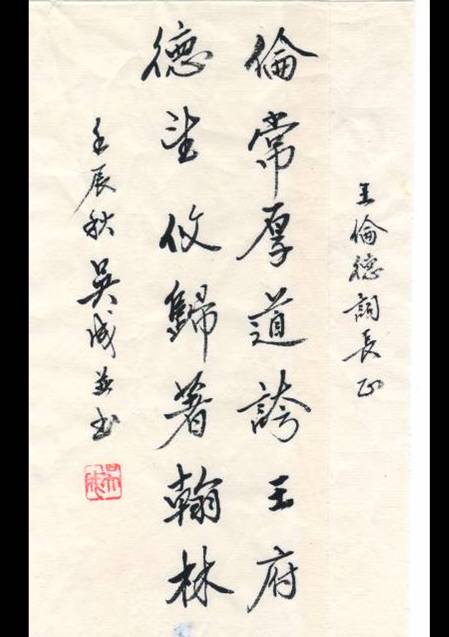 王倫德詞長正
倫常厚道誇王府
德望攸歸著翰林
壬辰秋吳成並書
吳成